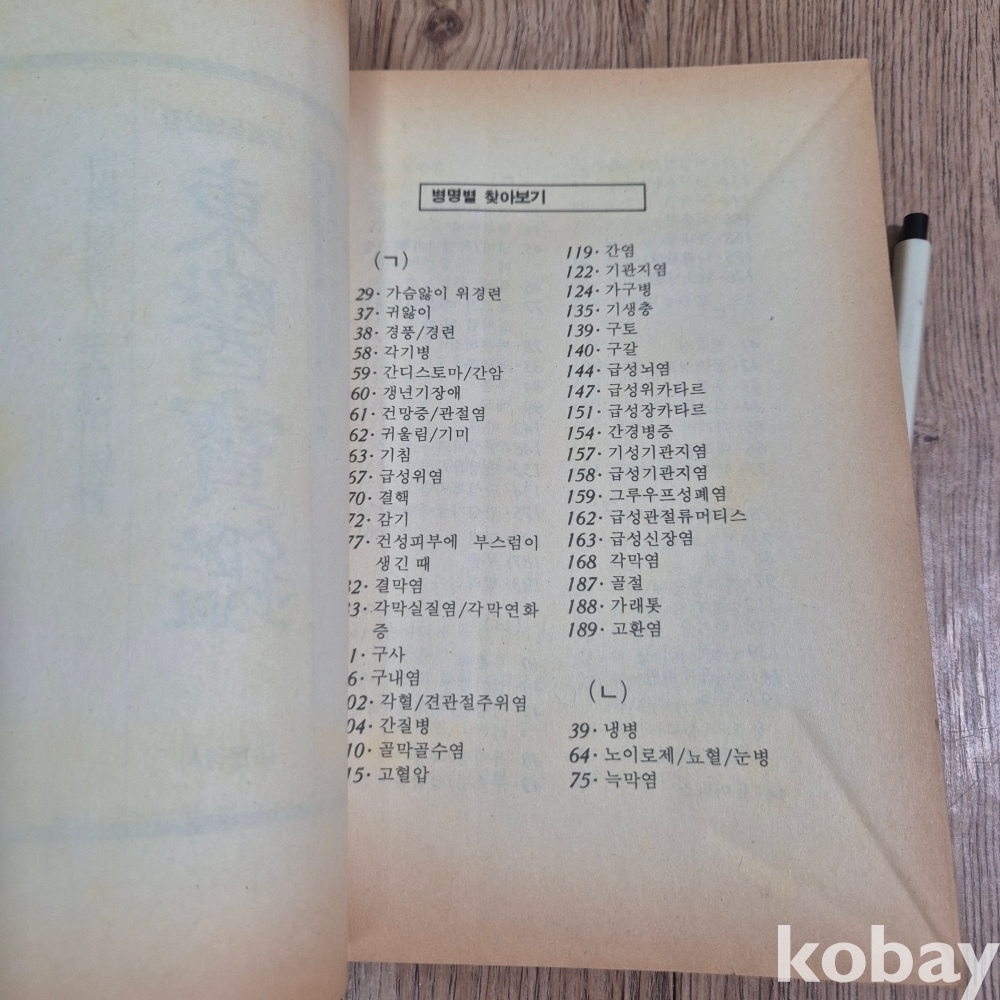 병명별 찾아보기
(ㄱ)
29· 가슴앓이 위경련
37· 귀앓이
38· 경풍/경련
58· 각기병
59· 간디스토마/간암
60· 갱년기장애
61· 건망증/관절염
62· 귀울림/기미
63· 기침
67· 급성위염
70· 결핵
72· 감기
77· 건성피부에 부스럼이
생긴 때
32· 결막염
33· 각막실질염/각막연화
증
1· 구사
6· 구내염
02· 각혈/견관절주위염
04· 간질병
10· 골막골수염
15· 고혈압
119· 간염
122· 기관지염
124· 가구병
135· 기생충
139· 구토
140· 구갈
144· 급성뇌염
147· 급성위카타르
151· 급성장카타르
154· 간경병증
157· 기성기관지염
158· 급성기관지염
159· 그루우프성폐염
162· 급성관절류머티스
163· 급성신장염
168 각막염
187· 골절
188· 가래톳
189· 고환염
(ㄴ)
39· 냉병
64· 노이로제/뇨혈/눈병
75· 늑막염
kobay